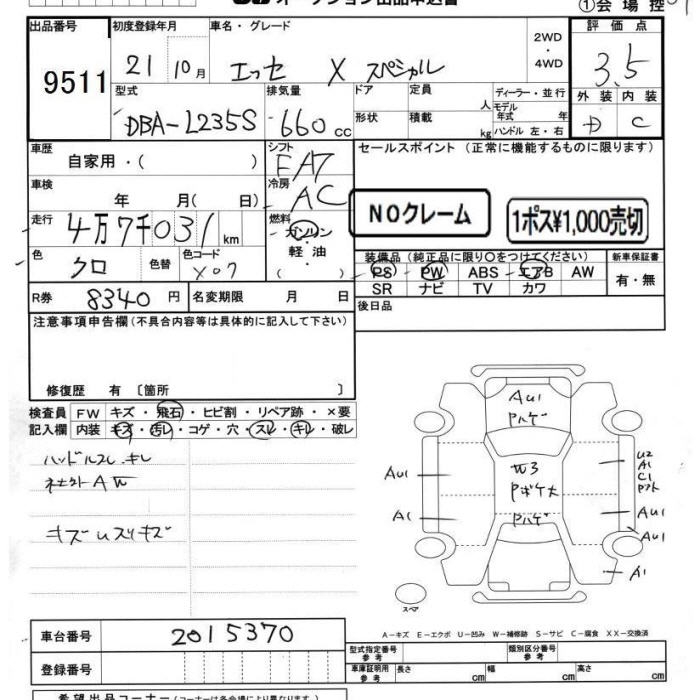 オークション出品申込書
①会場控
出品番号 初度登録年月 車名・グレード 評価点
9511 21 10月 エッセ X スペシャル 2WD・4WD 3.5
型式 排気量 ドア 定員 人 ディーラー・並行 外装 内装
DBA-L235S 660cc 形状 積載 kg モデル年式 年 ハンドル 左・右 D C
車歴 シフト セールスポイント（正常に機能するものに限ります）
自家用・（ ） FA7
車検 冷房
年 月（ 日） AC NOクレーム 1ポス¥1,000売切
走行 燃料
4万7千031km ガソリン
軽油
（ ）
色 色替 色コード 装備品（純正品に限り○をつけてください） 新車保証書
クロ X07 PS PW ABS エアB AW 有・無
R券 8340円 名変期限 月 日 SR ナビ TV カワ
注意事項申告欄（不具合内容等は具体的に記入して下さい） 後日品
修復歴 有〔箇所 〕
検査員 FW キズ・飛石・ヒビ割・リペア跡・×要
記入欄 内装 キズ・汚レ・コゲ・穴・スレ・キレ・破レ
ハンドルスレ.キレ
社外AW
キズuスリキズ
AU1
Pハゲ
W3
Pボケ大
Pハゲ
AU1
A1
U2
A1
C1
AU1
AU1
A1
スペア
車台番号 2015370
登録番号
A－キズ E－エクボ U－凹み W－補修跡 S－サビ C－腐食 XX－交換済
型式指定番号 参考 類別区分番号 参考
車庫証明用 参考 長さ cm 幅 cm 高さ cm
希望出品コーナー（コーナーは各会場により異なります）